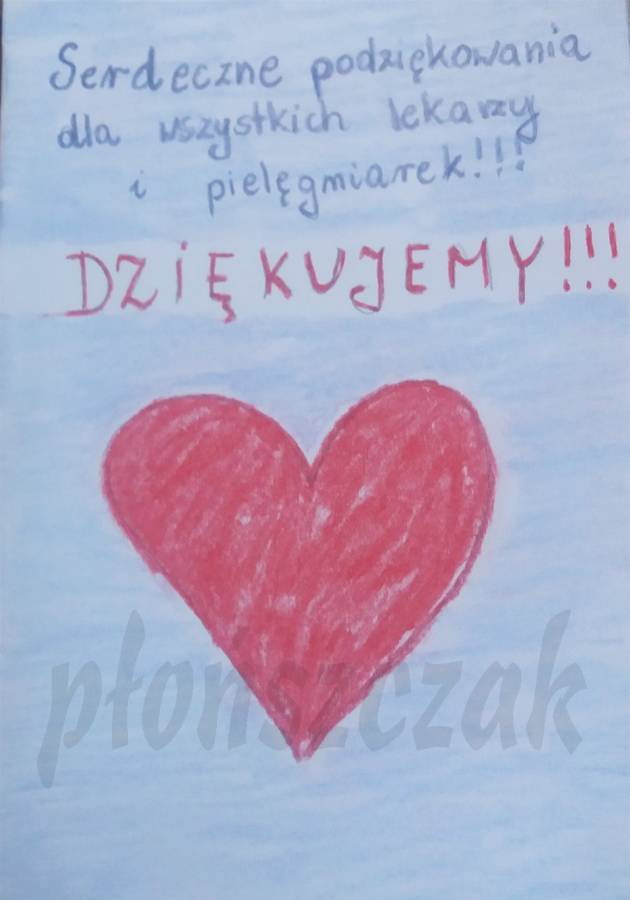 Serdeczne podziękowania
dla wszystkich lekarzy
i pielęgniarek!!!
DZIĘKUJEMY!!!
płońszczak